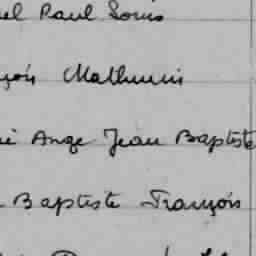 el Paul Louis
çois Mathurin
é Ange Jean Baptiste
Baptiste François